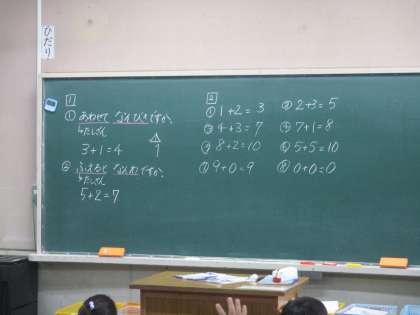 ひだり
1
① あわせて なんびきですか。
↳たしざん
3+1=4
② ふえると なんわですか。
↳たしざん
5+2=7
2
① 1+2=3
② 2+3=5
③ 4+3=7
④ 7+1=8
⑤ 8+2=10
⑥ 5+5=10
⑦ 9+0=9
⑧ 0+0=0